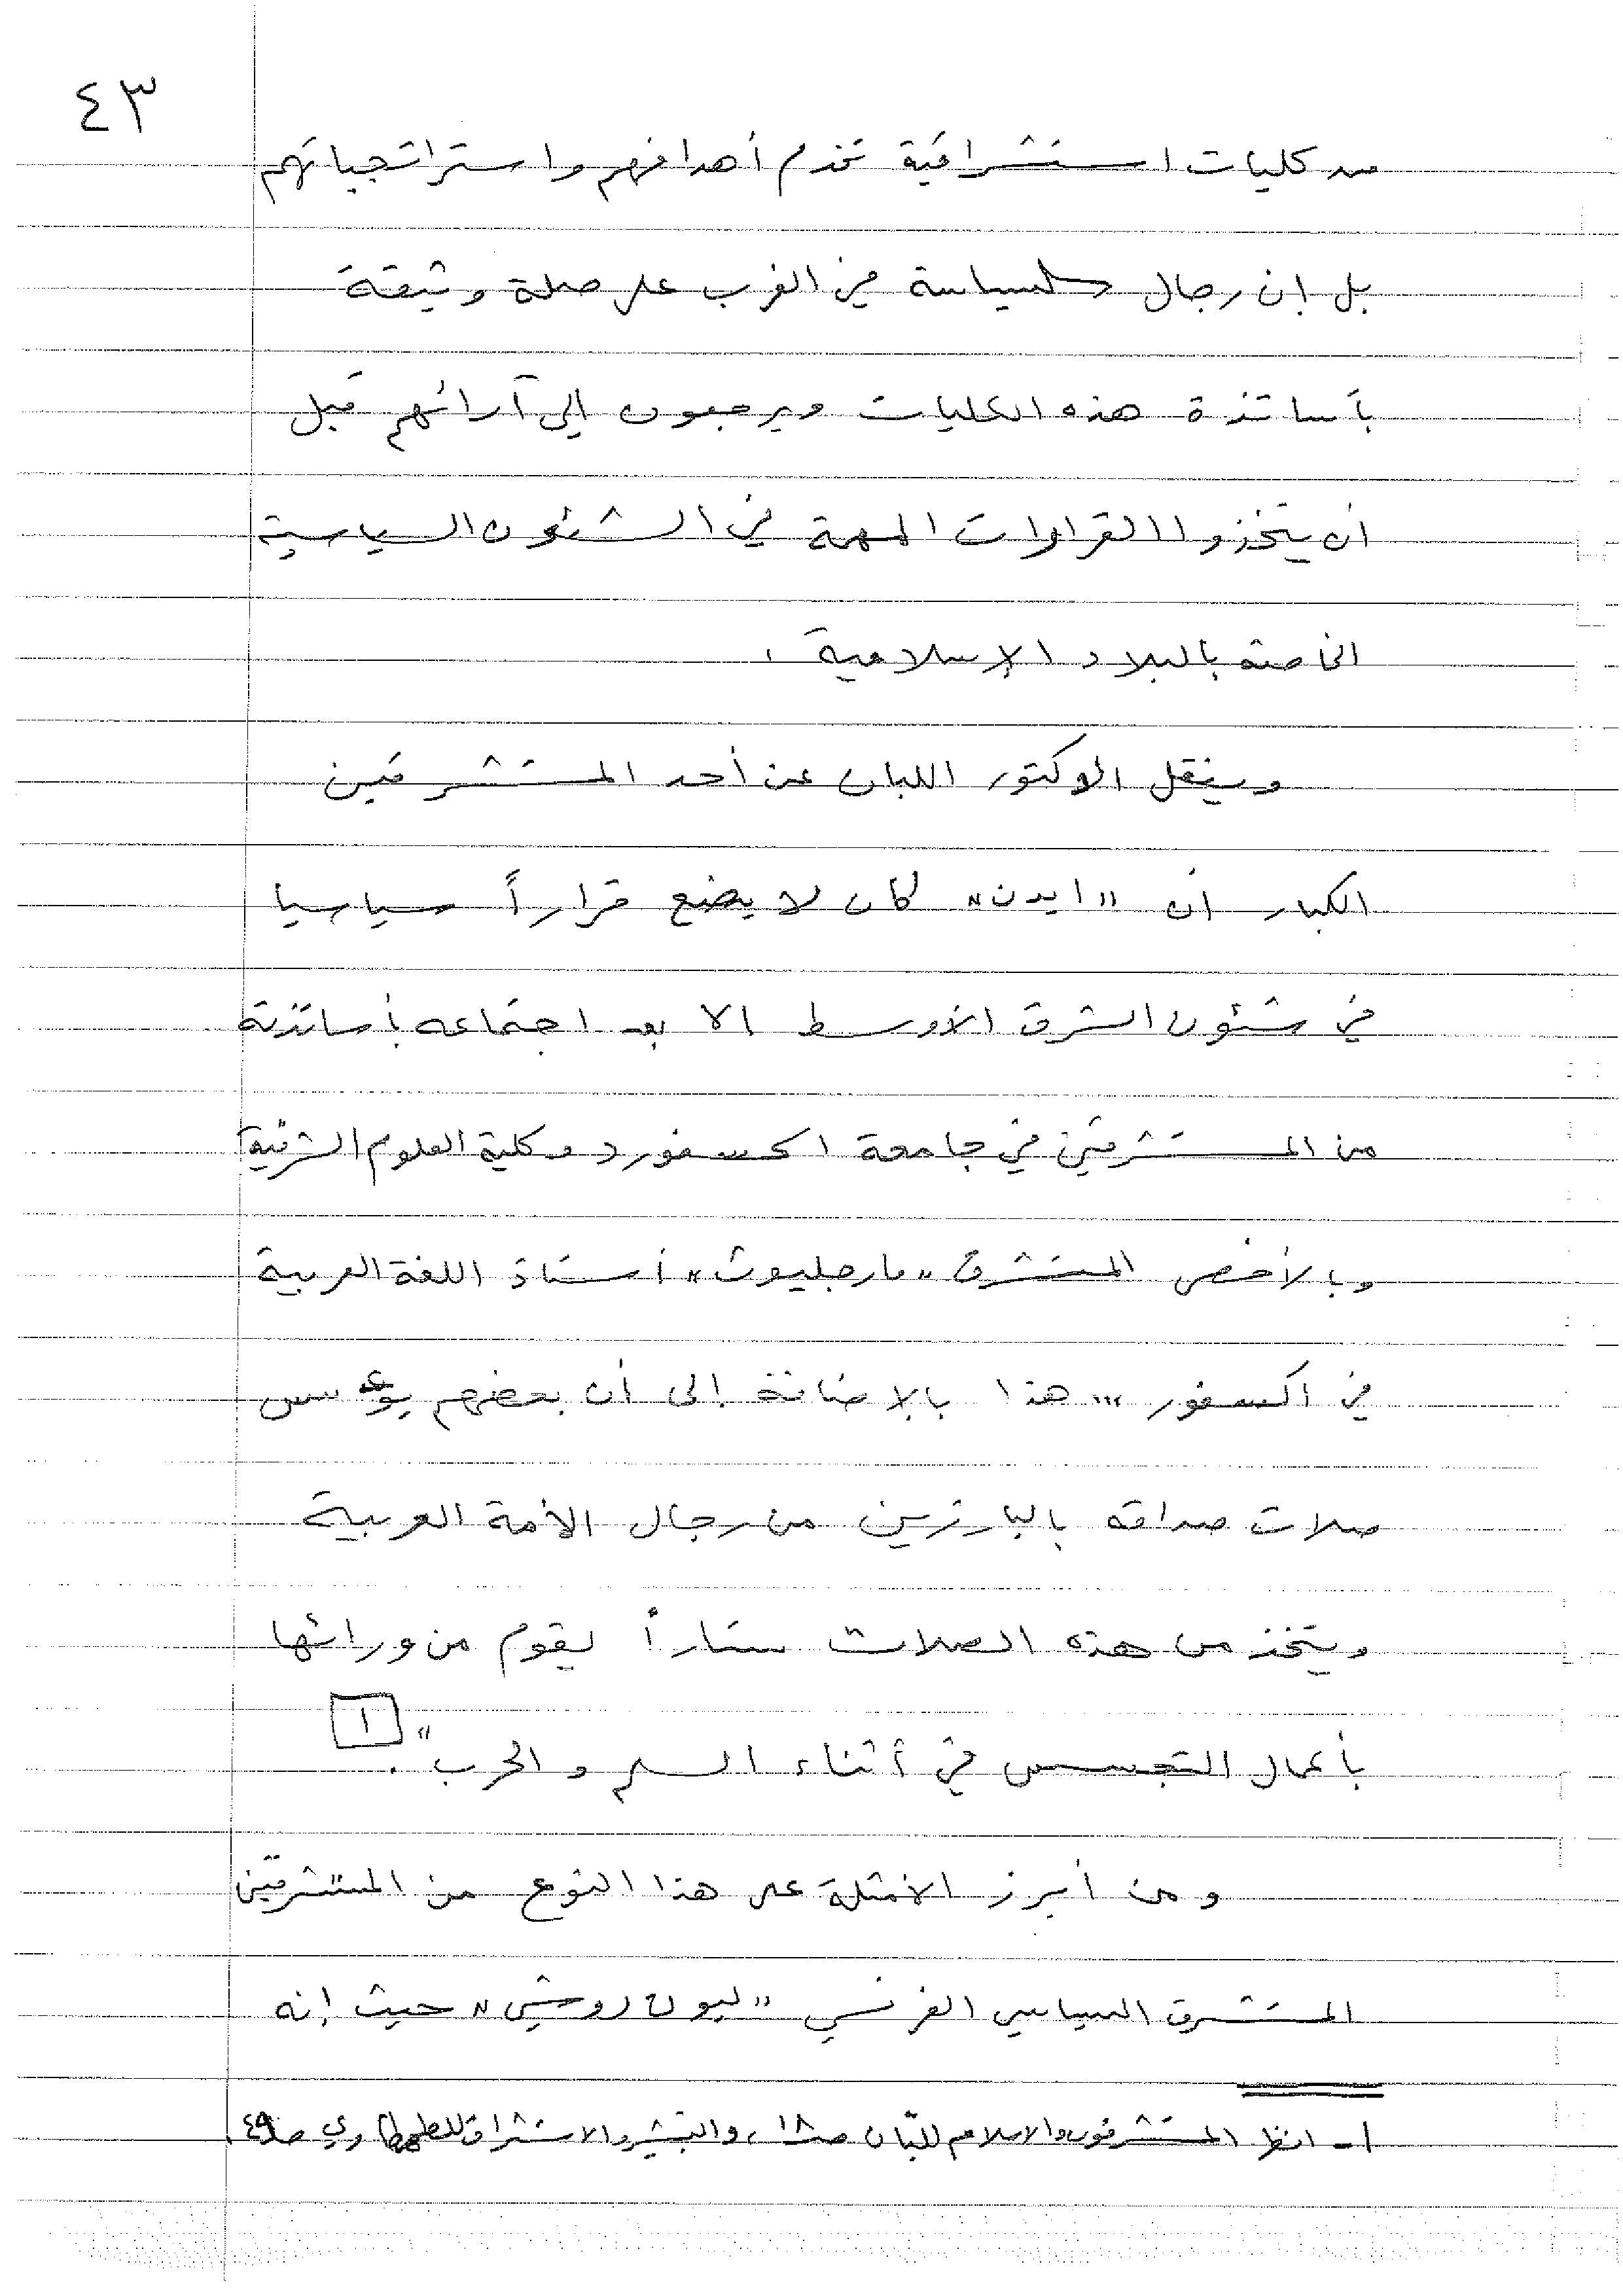 ٤٣
من كليات استشراقية تخدم أهدافهم واستراتجياتهم
بل إن رجال السياسة في الغرب على صلة وثيقة
بأساتذة هذه الكليات ويرجعون إلى آرائهم قبل
أن يتخذوا القرارات المهمة في الشئون السياسية
الخاصة بالبلاد الإسلامية .
وينقل الدكتور اللبان عن أحد المستشرقين
الكبار أن "ايدن" كان لا يضع قراراً سياسيا
في شئون الشرق الأوسط إلا بعد اجتماعه بأساتذة
من المستشرقين في جامعة اكسفورد وكلية العلوم الشرقية
وبالأخص المستشرق "مارجليوث" أستاذ اللغة العربية
في اكسفور ... هذا بالإضافة إلى أن بعضهم يؤسس
صلات صداقه بالبارزين من رجال الأمة العربية
ويتخذ من هذه الصلات ستاراً يقوم من ورائها
بأعمال التجسس في أثناء السلم والحرب ." [١]
ومن أبرز الأمثلة على هذا النوع من المستشرقين
المستشرق السياسي الفرنسي "ليون روشي" حيث إنه
١- انظر المستشرقون والاسلام للبّان صـ١٨، والتبشير والاستشراق للطهطاوي صـ٤٩.